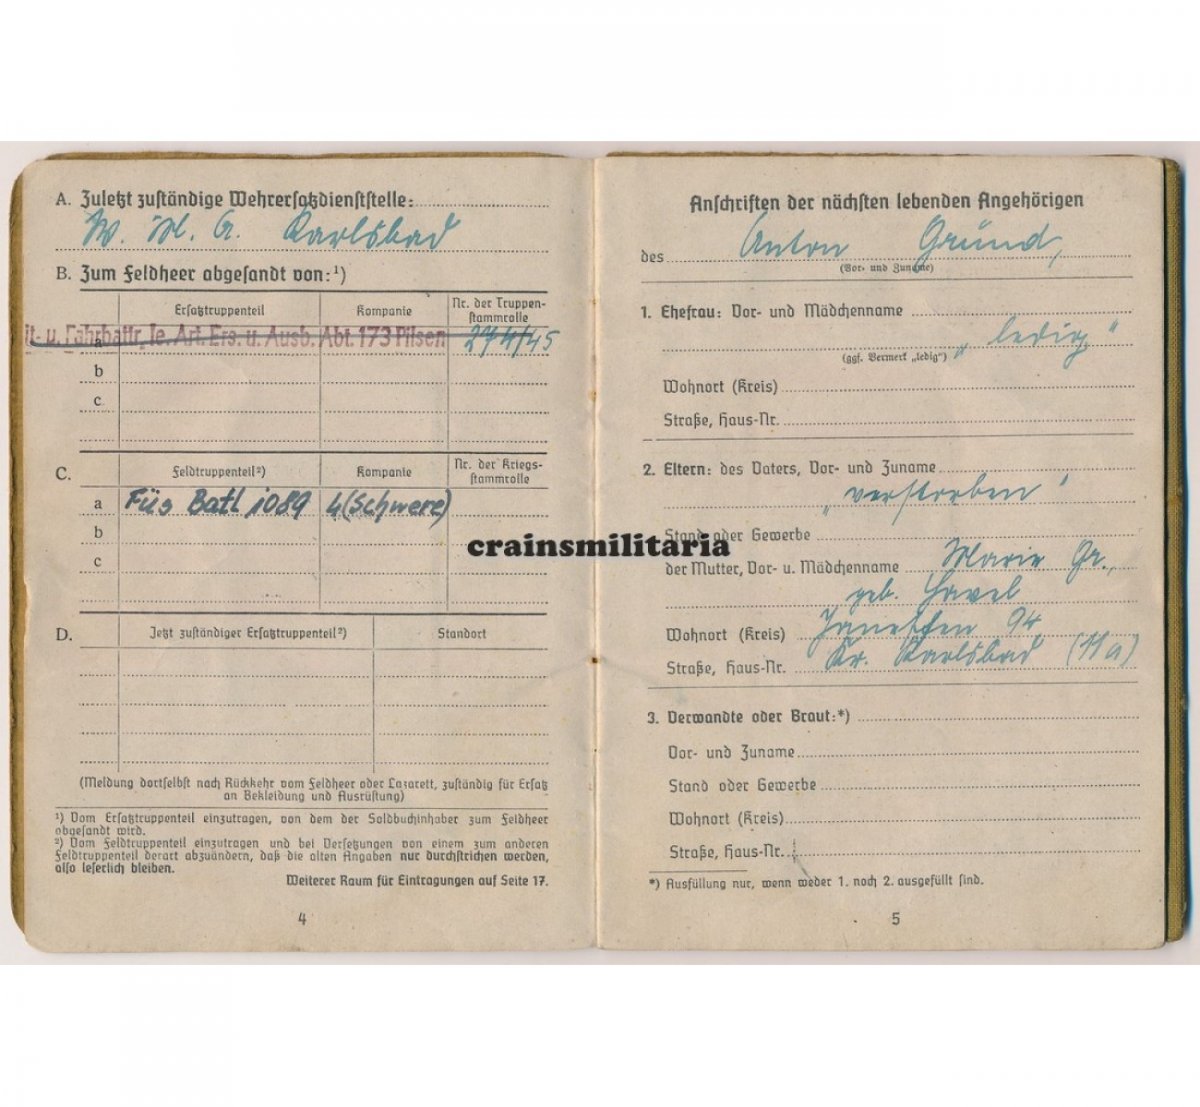 A. Zuletzt zuständige Wehrersatzdienststelle:
W. M. A. Karlsbad
B. Zum Feldheer abgesandt von:¹)
Ersatztruppenteil Kompanie Nr. der Truppen-
stammrolle
it- u. Fahrbattr. le. Art. Ers. u. Ausb. Abt. 173 Pilsen 274/45
a
b
c
C. Feldtruppenteil²) Kompanie Nr. der Kriegs-
stammrolle
a Füs Batl 1089 4 (Schwere)
b
c
D. Jetzt zuständiger Ersatztruppenteil²) Standort
(Meldung dortselbst nach Rückkehr vom Feldheer oder Lazarett, zuständig für Ersatz
an Bekleidung und Ausrüstung)
¹) Vom Ersatztruppenteil einzutragen, von dem der Soldbuchinhaber zum Feldheer
abgesandt wird.
²) Vom Feldtruppenteil einzutragen und bei Versetzungen von einem zum anderen
Feldtruppenteil derart abzuändern, daß die alten Angaben nur durchstrichen werden,
also leserlich bleiben.
Weiterer Raum für Eintragungen auf Seite 17.
4
Anschriften der nächsten lebenden Angehörigen
des Anton Gründ,
(Vor- und Zuname)
1. Ehefrau: Vor- und Mädchenname
„ledig"
(ggf. Vermerk „ledig")
Wohnort (Kreis)
Straße, Haus-Nr.
2. Eltern: des Vaters, Vor- und Zuname
„verstorben"
Stand oder Gewerbe
der Mutter, Vor- u. Mädchenname Marie Gr.,
geb. Havel
Wohnort (Kreis) 94
Straße, Haus-Nr. Kr. Karlsbad (11a)
3. Verwandte oder Braut:*)
Vor- und Zuname
Stand oder Gewerbe
Wohnort (Kreis)
Straße, Haus-Nr.
*) Ausfüllung nur, wenn weder 1. noch 2. ausgefüllt sind.
5
crainsmilitaria